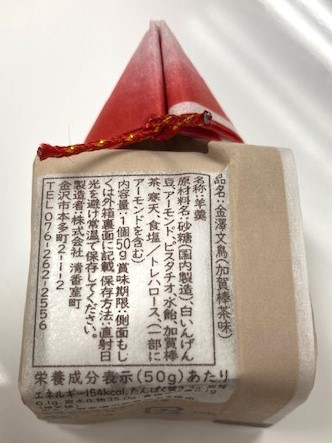 品名:金澤文鳥(加賀棒茶味)
名称:羊羹
原材料名:砂糖(国内製造)、白いんげん
豆、アーモンド、ピスタチオ、水飴、加賀棒
茶、寒天、食塩/トレハロース、(一部に
アーモンドを含む)
内容量:1個50g 賞味期限:側面もし
くは外箱裏面に記載 保存方法:直射日
光を避け常温で保存してください。
製造者:株式会社 清香室町
金沢市本多町2-1-2
TEL 076-262-2556
栄養成分表示(50g)あたり
エネルギー154kcal、たんぱく質